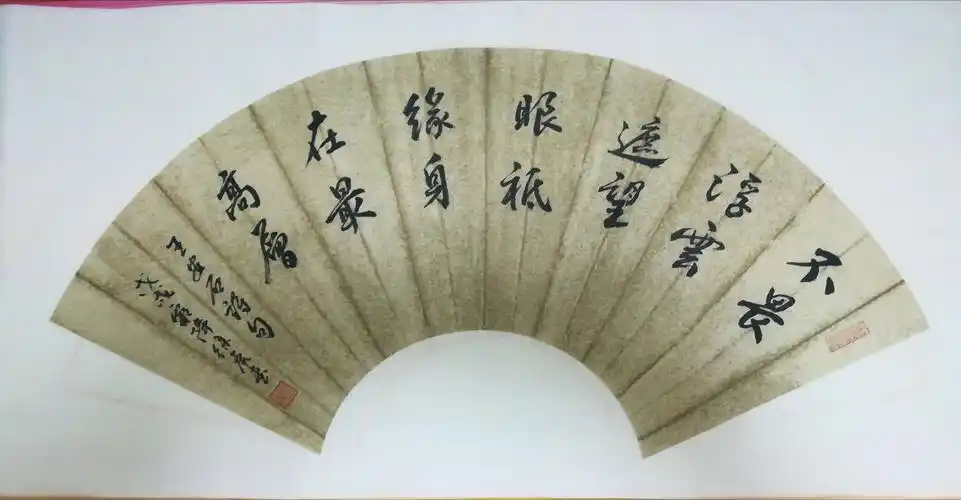 不畏
浮雲
遮望
眼祗
緣身
在最
高層
王安石詩句
戊戌